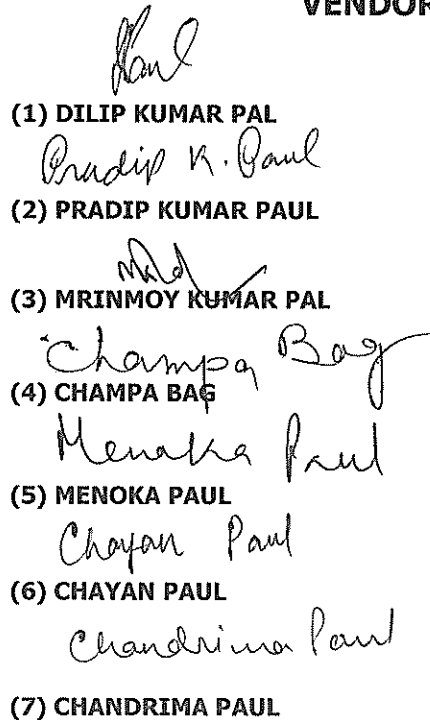 VENDOR
Paul
(1) DILIP KUMAR PAL
Pradip K. Paul
(2) PRADIP KUMAR PAUL
(3) MRINMOY KUMAR PAL
Champa Bag
(4) CHAMPA BAG
Menaka Paul
(5) MENOKA PAUL
Chayan Paul
(6) CHAYAN PAUL
Chandrima Paul
(7) CHANDRIMA PAUL